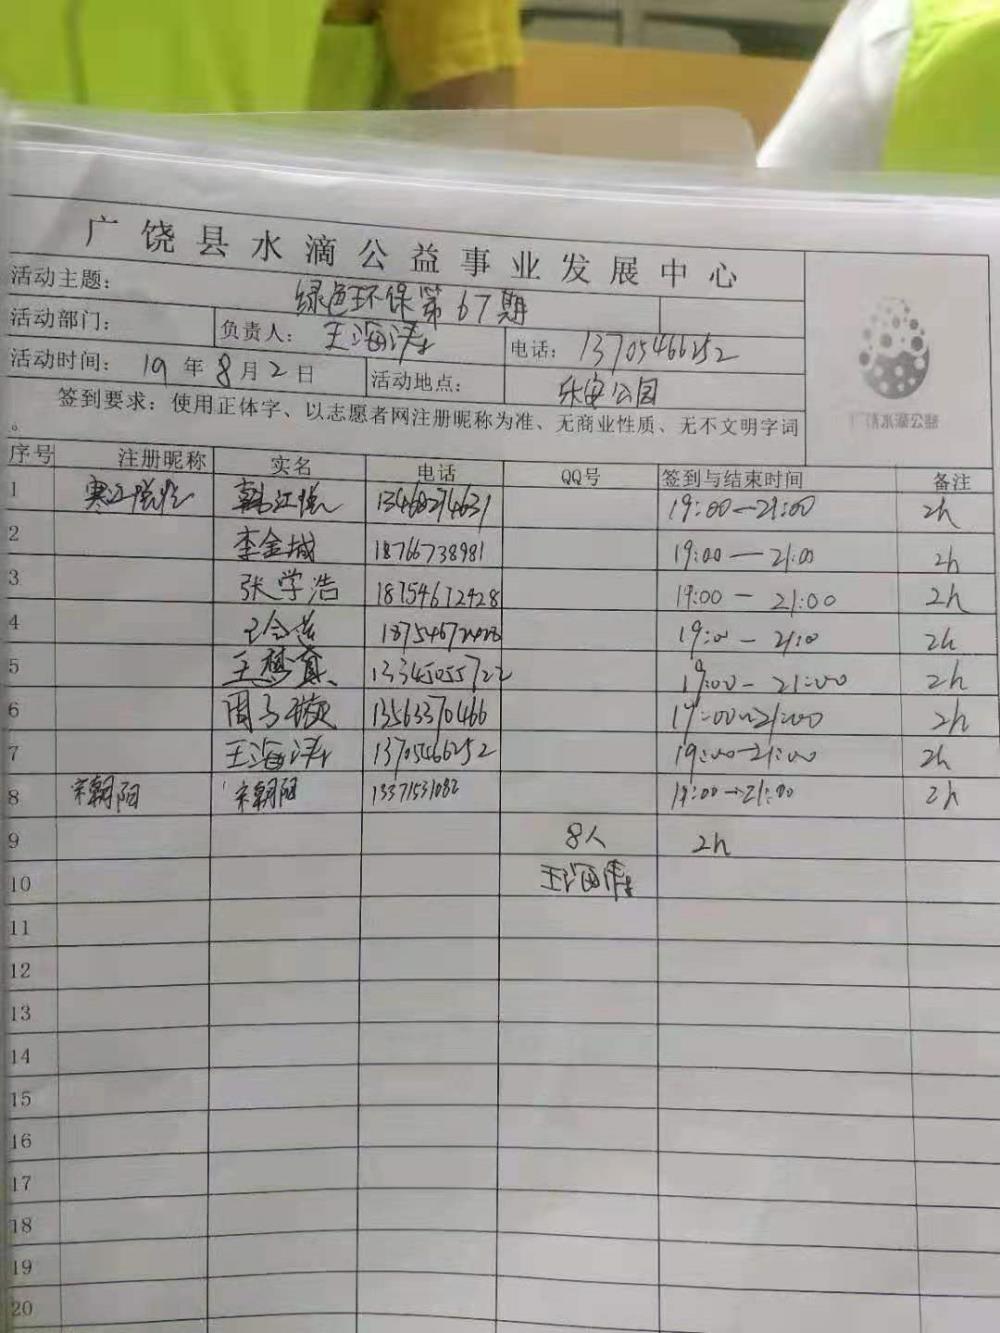 广饶县水滴公益事业发展中心
活动主题： 绿色环保第67期
活动部门： 负责人： 王海涛 电话： 13705466252
活动时间： 19年8月2日 活动地点： 乐安公园
签到要求：使用正体字、以志愿者网注册昵称为准、无商业性质、无不文明字词
。
水滴公益
序号 注册昵称 实名 电话 QQ号 签到与结束时间 备注
1 寒江 韩江 13468274631 19:00—21:00 2h
2 李金城 18766738981 19:00—21:00 2h
3 张学浩 18754672428 19:00—21:00 2h
4 18754672428 19:00—21:0 2h
5 王梦真 13345055722 19:00—21:00 2h
6 周子璇 13563370466 19:00—21:00 2h
7 王海涛 13705466252 19:00—21:00 2h
8 宋朝阳 宋朝阳 13371531082 19:00—21:00 2h
9 8人 2h
10 王海涛
11
12
13
14
15
16
17
18
19
20